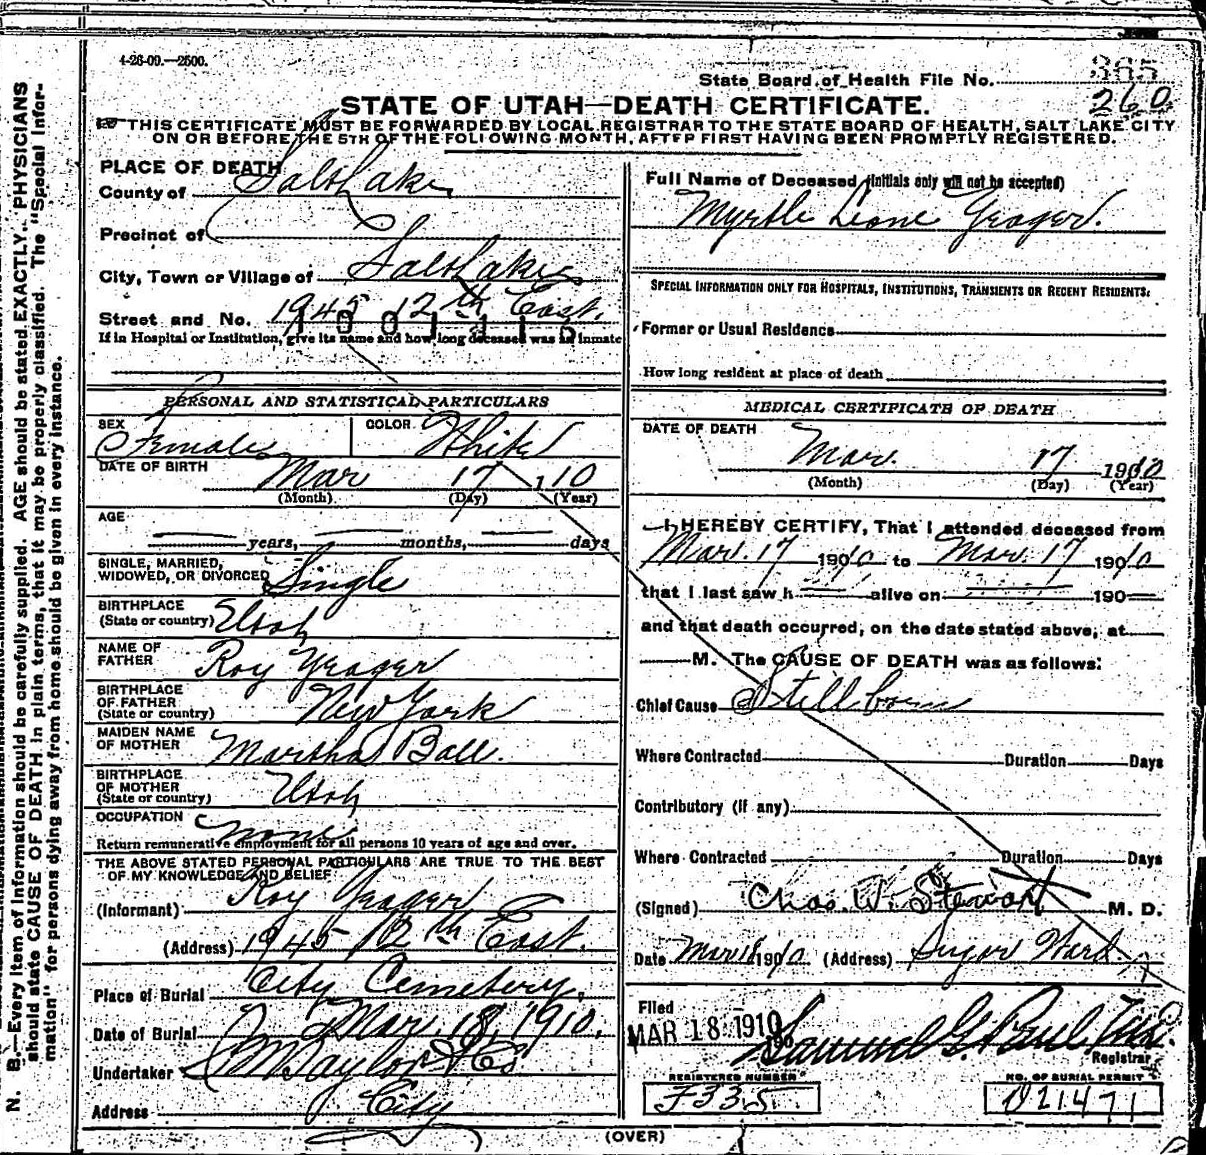 4-26-09.—2500.
State Board of Health File No. 365
260
STATE OF UTAH—DEATH CERTIFICATE.
THIS CERTIFICATE MUST BE FORWARDED BY LOCAL REGISTRAR TO THE STATE BOARD OF HEALTH, SALT LAKE CITY
ON OR BEFORE THE 5TH OF THE FOLLOWING MONTH, AFTER FIRST HAVING BEEN PROMPTLY REGISTERED.
PLACE OF DEATH
County of Salt Lake
Precinct of
City, Town or Village of Salt Lake
Street and No. 1945 12th East.
1001115
If in Hospital or Institution, give its name and how long deceased was an inmate
PERSONAL AND STATISTICAL PARTICULARS
SEX Female
COLOR White
DATE OF BIRTH Mar 17 110
(Month) (Day) (Year)
AGE
years, months, days
SINGLE, MARRIED,
WIDOWED, OR DIVORCED Single
BIRTHPLACE
(State or country) Utah
NAME OF
FATHER Roy Yeager
BIRTHPLACE
OF FATHER
(State or country) New York
MAIDEN NAME
OF MOTHER Martha Ball.
BIRTHPLACE
OF MOTHER
(State or country) Utah
OCCUPATION none
Return remunerative employment for all persons 10 years of age and over.
THE ABOVE STATED PERSONAL PARTICULARS ARE TRUE TO THE BEST
OF MY KNOWLEDGE AND BELIEF
(Informant) Roy Yeager
(Address) 1945 12th East.
Place of Burial City Cemetery.
Date of Burial Mar. 18, 1910.
Undertaker Taylor & Co
Address City
Full Name of Deceased (Initials only will not be accepted)
Myrtle Leone Yeager.
SPECIAL INFORMATION ONLY FOR HOSPITALS, INSTITUTIONS, TRANSIENTS OR RECENT RESIDENTS.
Former or Usual Residence
How long resident at place of death
MEDICAL CERTIFICATE OF DEATH
DATE OF DEATH
Mar. 17 1910
(Month) (Day) (Year)
I HEREBY CERTIFY, That I attended deceased from
Mar. 17 1910 to Mar. 17 1910
that I last saw h alive on 190
and that death occurred, on the date stated above, at
M. The CAUSE OF DEATH was as follows:
Chief Cause Stillborn
Where Contracted Duration Days
Contributory (if any)
Where Contracted Duration Days
(Signed) Chas. W. Stewart M. D.
Date Mar 18 1910 (Address) Sugar Ward.
Filed
MAR 18 1910
Samuel G. Paul
Registrar
REGISTERED NUMBER
F335
NO. OF BURIAL PERMIT
021471
(OVER)
N. B.—Every item of information should be carefully supplied. AGE should be stated EXACTLY. PHYSICIANS
should state CAUSE OF DEATH in plain terms, that it may be properly classified. The "Special Infor-
mation" for persons dying away from home should be given in every instance.